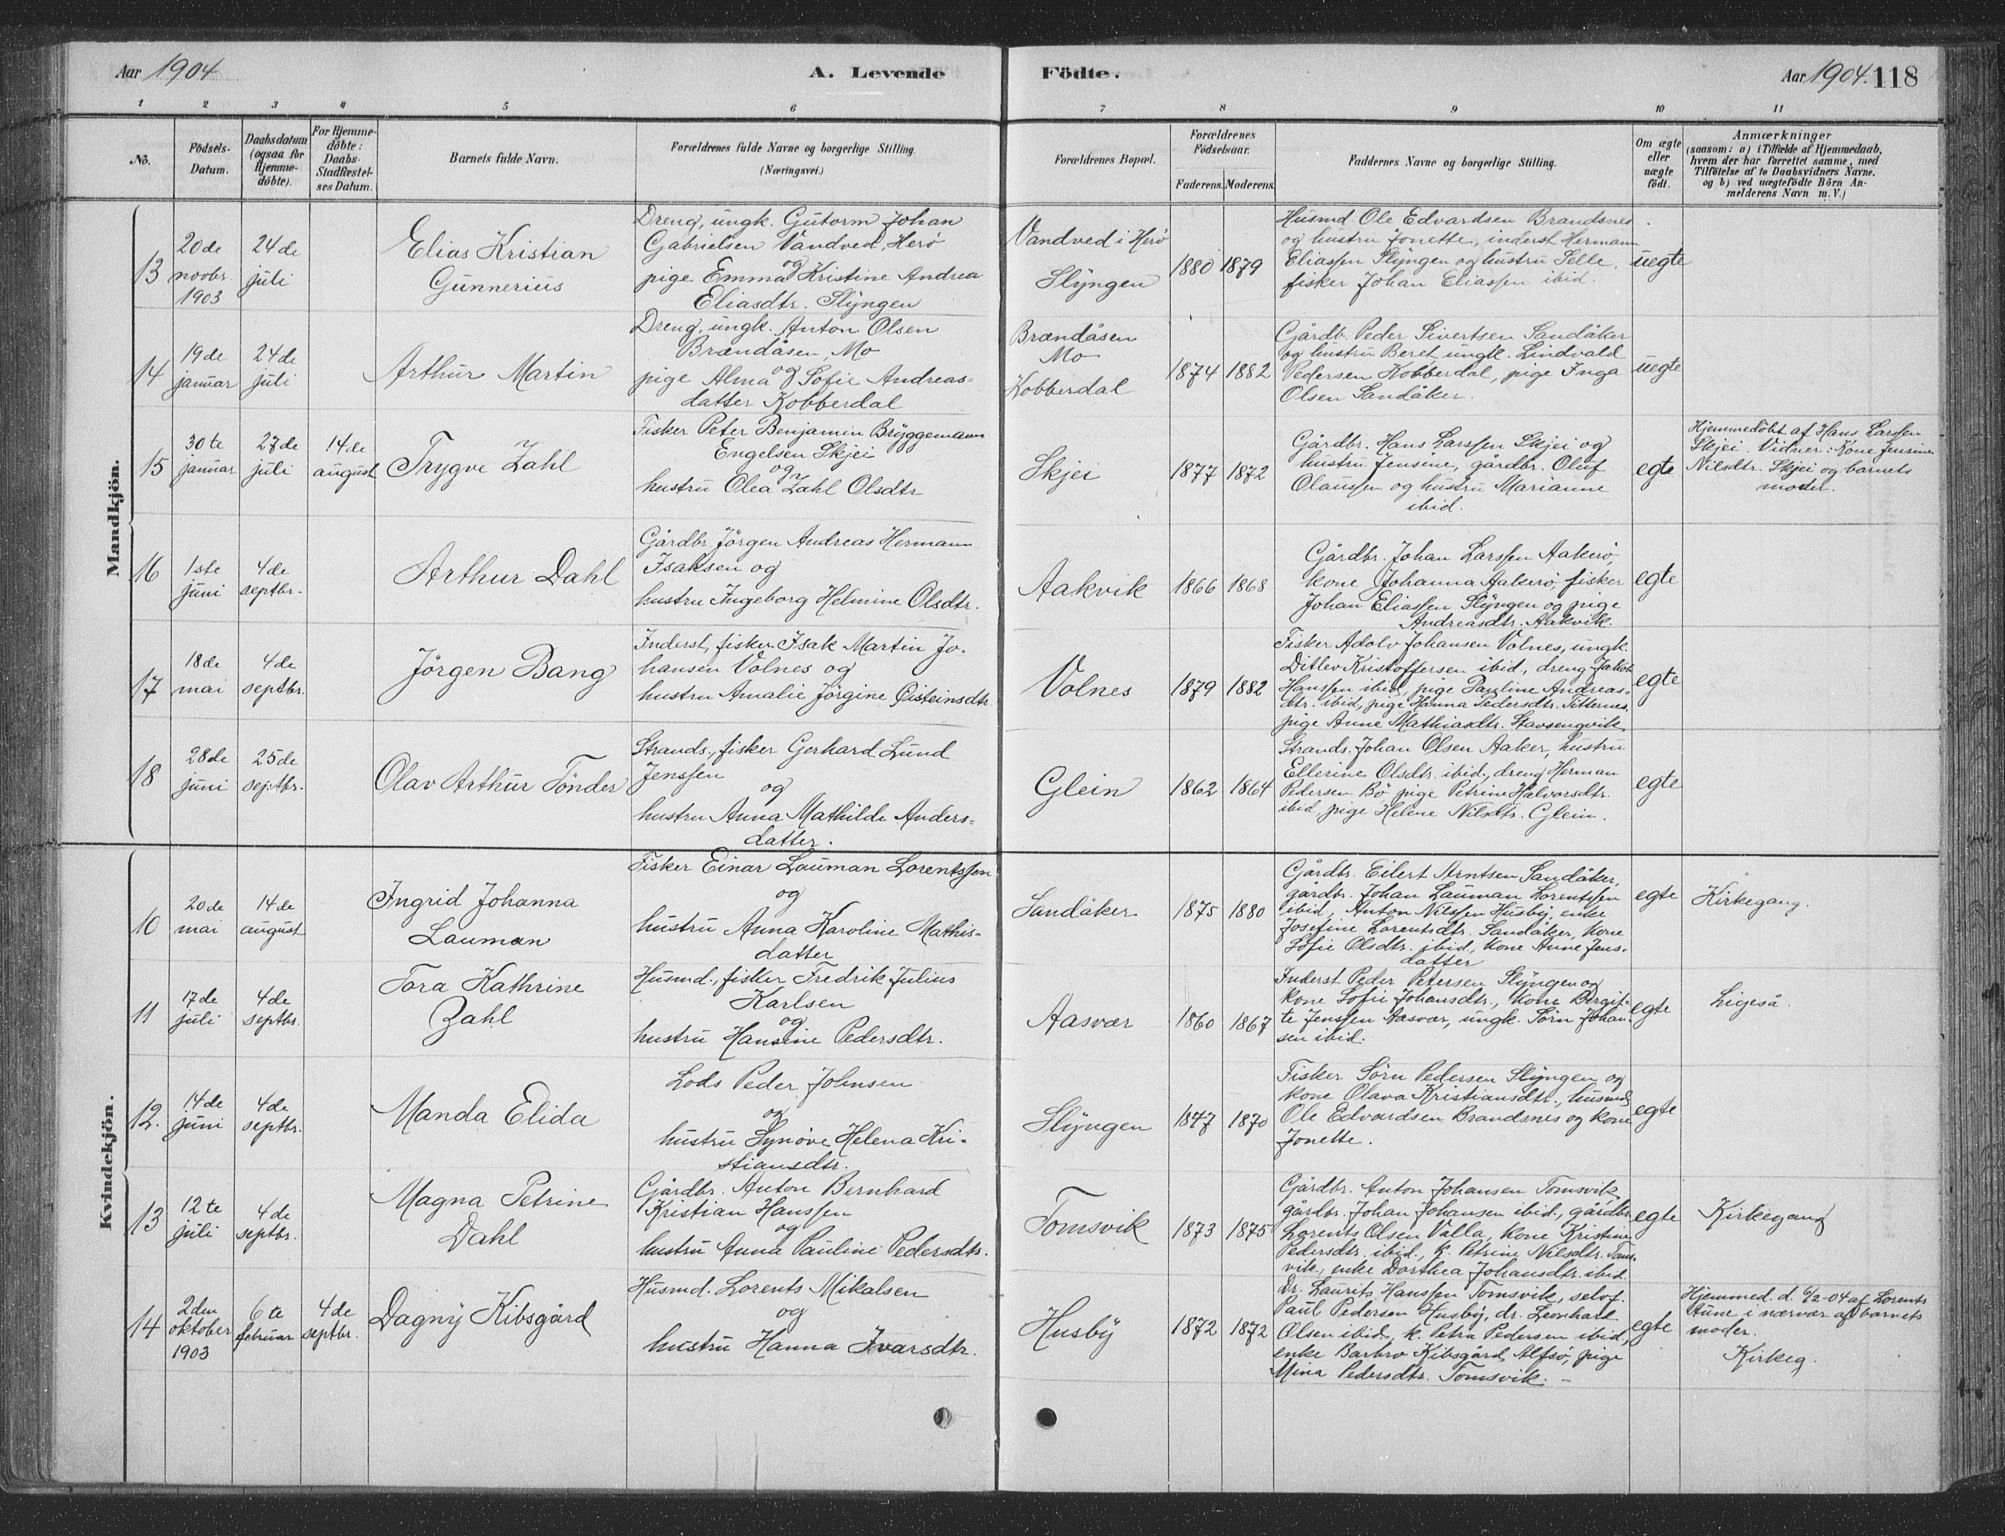 Aar 1904
A. Levende
Födte.
Aar 1904. 118
1 2 3 4 5 6 7 8 9 10 11
No.
Födsels-
Datum.
Daabsdatum
(ogsaa for
Hjemme-
döbte).
For Hjemme-
döbte:
Daabs-
Stadfæstel-
ses Datum.
Barnets fulde Navn.
Forældrenes fulde Navne og borgerlige Stilling.
(Næringsvei.)
Forældrenes Bopæl.
Forældrenes
Födselsaar.
Faderens. Moderens.
Faddernes Navne og borgerlige Stilling.
Om ægte
eller
uægte
födt.
Anmærkninger
(saasom: a) i Tilfælde af Hjemmedaab,
hvem der har forrettet samme, med
Tilföielse af to Daabsvidners Navne,
og b) ved uægtefödte Börn An-
melderens Navn m. V.)
Mandkjön.
13
20de
novbr
1903
24de
juli
Elias Kristian
Gunnerius
Dreng, ungk. Gutorm Johan
Gabrielsen Vandved, Herö
og
pige Emma Kristine Andrea
Eliasdtr. Slyngen
Vandved i Herö
Slyngen
1880 1879
Husmd Ole Edvardsen Brandsnes
og hustru Jonette, inderst Hermann
Eliassen Slyngen og hustru Selle,
fisker Johan Eliassen ibid.
uegte
14
19de
januar
24de
juli
Arthur Martin
Dreng, ungk. Anton Olsen
Brændåsen, Mo
og
pige Alma Sofie Andreas-
datter Kobberdal
Brændåsen
Mo
Kobberdal
1874 1882
Gårdb. Peder Sivertsen Sandåker
og hustru Beret, ungk. Lindvald
Pedersen Kobberdal, pige Inga
Olsen Sandåker.
uegte
15
30te
januar
27de
juli
14de
august
Trygve Zahl
Fisker Peter Benjamin Bryggemann
Engelsen Skjei
og
hustru Olea Zahl Olsdtr
Skjei
1877 1872
Gårdbr. Hans Larssen Skjei og
hustru Jensine, gårdbr. Oluf
Olaussen og hustru Marianne
ibid.
egte
Hjemmedöbt af Hans Larssen
Skjei. Vidner: Kone Jensine
Nilsdtr. Skjei og barnets
moder.
16
1ste
juni
4de
septbr.
Arthur Dahl
Gårdbr. Jörgen Andreas Hermann
Isaksen og
hustru Ingeborg Helmine Olsdtr.
Aakvik
1866 1868
Gårdbr. Johan Larssen Aakerö,
kone Johanna Aakerö, fisker
Johan Eliassen Slyngen og pige
Andreasdtr. Aakvik.
egte
17
18de
mai
4de
septbr.
Jörgen Bang
Inderst, fisker Isak Martin Jo-
hansen Volnes og
hustru Amalie Jörgine Östeinsdtr.
Volnes
1879 1882
Fisker Adolv Johansen Volnes, ungk.
Ditlev Kristoffersen ibid, dreng Jakob
Hanssen ibid, pige Pauline Andreas-
dtr. ibid, pige Hanna Pedersdtr. Titternes,
pige Anne Mathiasdtr. Stavsengvik.
egte
18
28de
juni
25de
septbr.
Olav Arthur Tönder
Strands., fisker Gerhard Lund
Jenssen
og
hustru Anna Mathilde Anders-
datter.
Glein
1862 1864
Strands. Johan Olsen Aaker, hustru
Ellerine Olsdtr. ibid, dreng Herman
Pedersen Bö, pige Petrine Halvorsdtr.
ibid, pige Helene Nilsdtr. Glein.
egte
Kvindekjön.
10
20de
mai
14de
august
Ingrid Johanna
Lauman
Fisker Einar Lauman Lorentssen
og
hustru Anna Karoline Mathis-
datter
Sandåker
1875 1880
Gårdbr. Eilert Arntsen Sandåker,
gårdbr. Johan Lauman Lorentssen
ibid, Anton Nilssen Husby, enke
Josefine Lorentsdtr. Sandåker, kone
Sofie Olsdtr. ibid, kone Anne Jens-
datter
egte
Kirkegang.
11
17de
juli
4de
septbr.
Tora Kathrine
Zahl
Husmd., fisker Fredrik Julius
Karlsen
og
hustru Hansine Pedersdtr.
Aasvær
1860 1867
Inderst Peder Petersen Slyngen og
kone Sofie Johansdtr., kone Bergit-
te Jenssen Aasvær, ungk. Sörn Johan-
sen ibid.
egte
Ligeså.
12.
14de
juni
4de
septbr.
Manda Elida
Lods Peder Johnsen
og
hustru Synöve Helena Kri-
stiansdtr.
Slyngen
1847 1870
Fisker Sörn Pedersen Slyngen og
kone Olava Kristiansdtr., husmd.
Ole Edvardsen Brandsnes og kone
Jonette.
egte
13
12te
juli
4de
septbr.
Magna Petrine
Dahl
Gårdbr. Anton Bernhard
Kristian Hanssen
og
hustru Anna Pauline Pedersdtr.
Tomsvik
1873 1875
Gårdbr. Anton Johansen Tomsvik,
gårdbr. Johan Johansen ibid., gårdbr.
Lorents Olsen Valla, kone Kristine
Pedersdtr. ibid., k. Petrine Nilsdtr. Toms-
vik, enke Dorthea Johansdtr. ibid.
egte
Kirkegang
14
2den
oktober
1903
6te
februar
4de
septbr.
Dagny Kibsgård
Husmd. Lorents Mikalsen
og
hustru Hanna Ivarsdtr.
Husby
1872 1872
Dr. Laurits Hanssen Tomsvik, selvf.
Paul Pedersen Husby, dr. Leonhard
Olsen ibid, k. Petra Pedersen ibid,
enke Barbro Kibsgård, Alfsö, pige
Mina Pedersdtr. Tomsvik. –
egte
Hjemmed. d. 6/2-04 af Lorents
Aune i nærvær af barnets
moder.
Kirkeg.